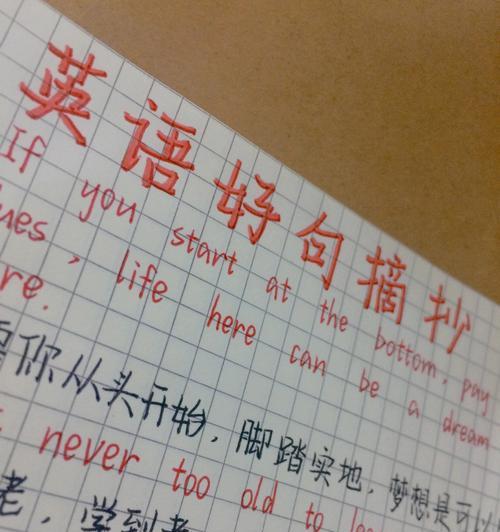 英语好句摘抄
If you start at the bottom, pay
ues, life here can be a dream
re.
你从头开始，脚踏实地，梦想是可以
never too old to
老，学到老